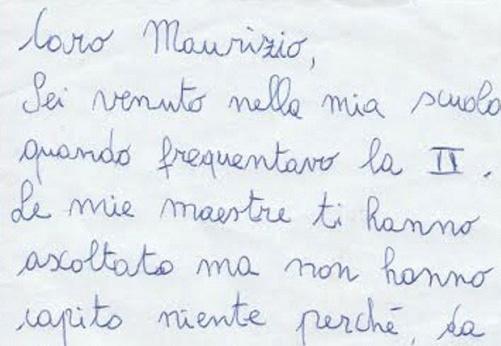 Caro Maurizio,
Sei venuto nella mia scuola
quando frequentavo la II.
Le mie maestre ti hanno
ascoltato ma non hanno
capito niente perché, da